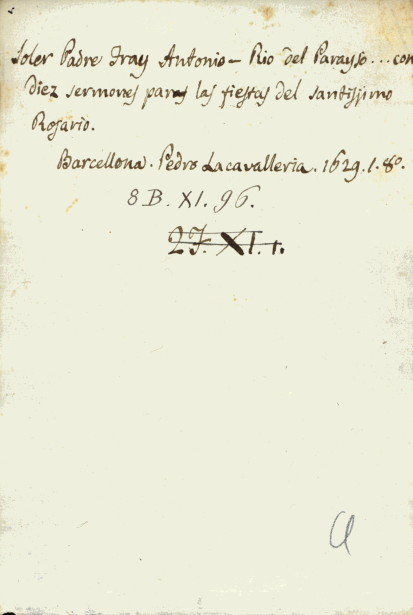 Soler Padre Fray Antonio – Rio del Parayso ... con
Diez sermones para las fiestas del santissimo
Rosario.
Barcellona. Pedro Lacavalleria. 1629. 1. 8º.
8 B. XI. 96.
27. XI. 1.